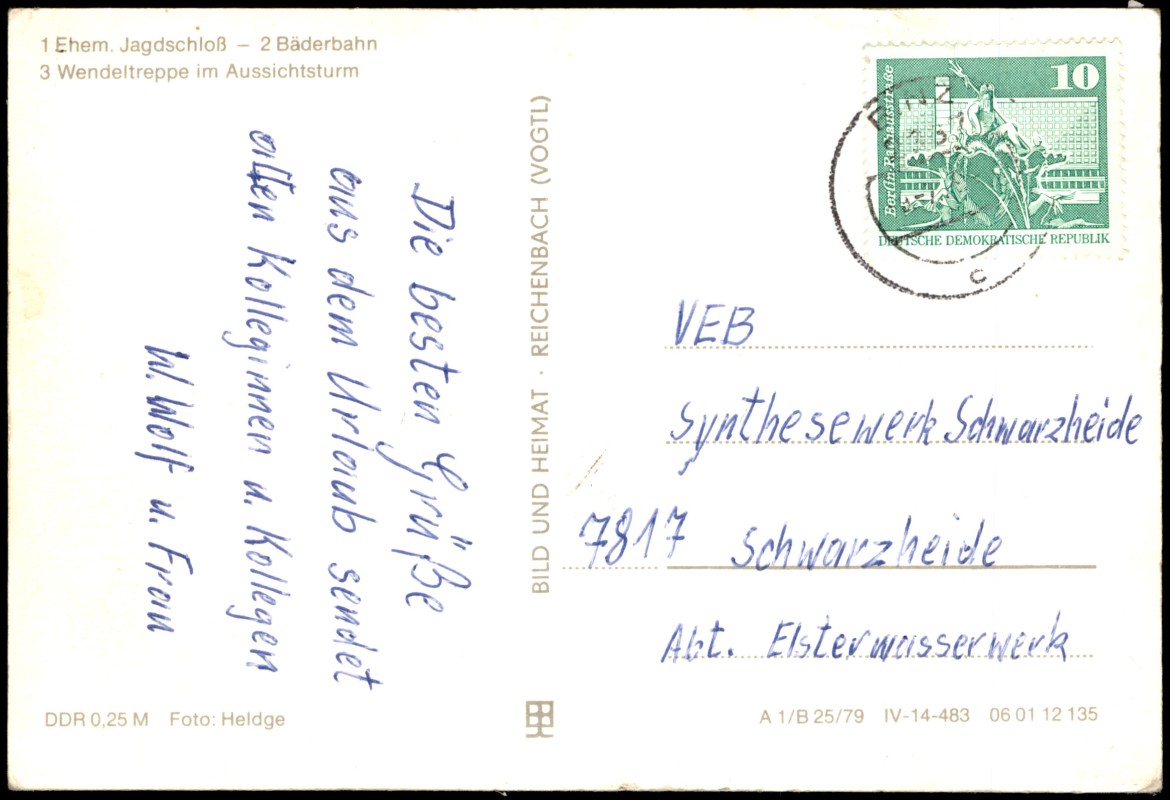 1 Ehem. Jagdschloß – 2 Bäderbahn
3 Wendeltreppe im Aussichtsturm
Die besten Grüße
aus dem Urlaub sendet
allen Kolleginnen u. Kollegen
W. Wolf u. Frau
BILD UND HEIMAT · REICHENBACH (VOGTL)
10
Berlin-Rathausstraße
DEUTSCHE DEMOKRATISCHE REPUBLIK
c
VEB
Synthesewerk Schwarzheide
7817 Schwarzheide
Abt. Elsterwasserwerk
DDR 0,25 M Foto: Heldge
A 1/B 25/79 IV-14-483 06 01 12 135